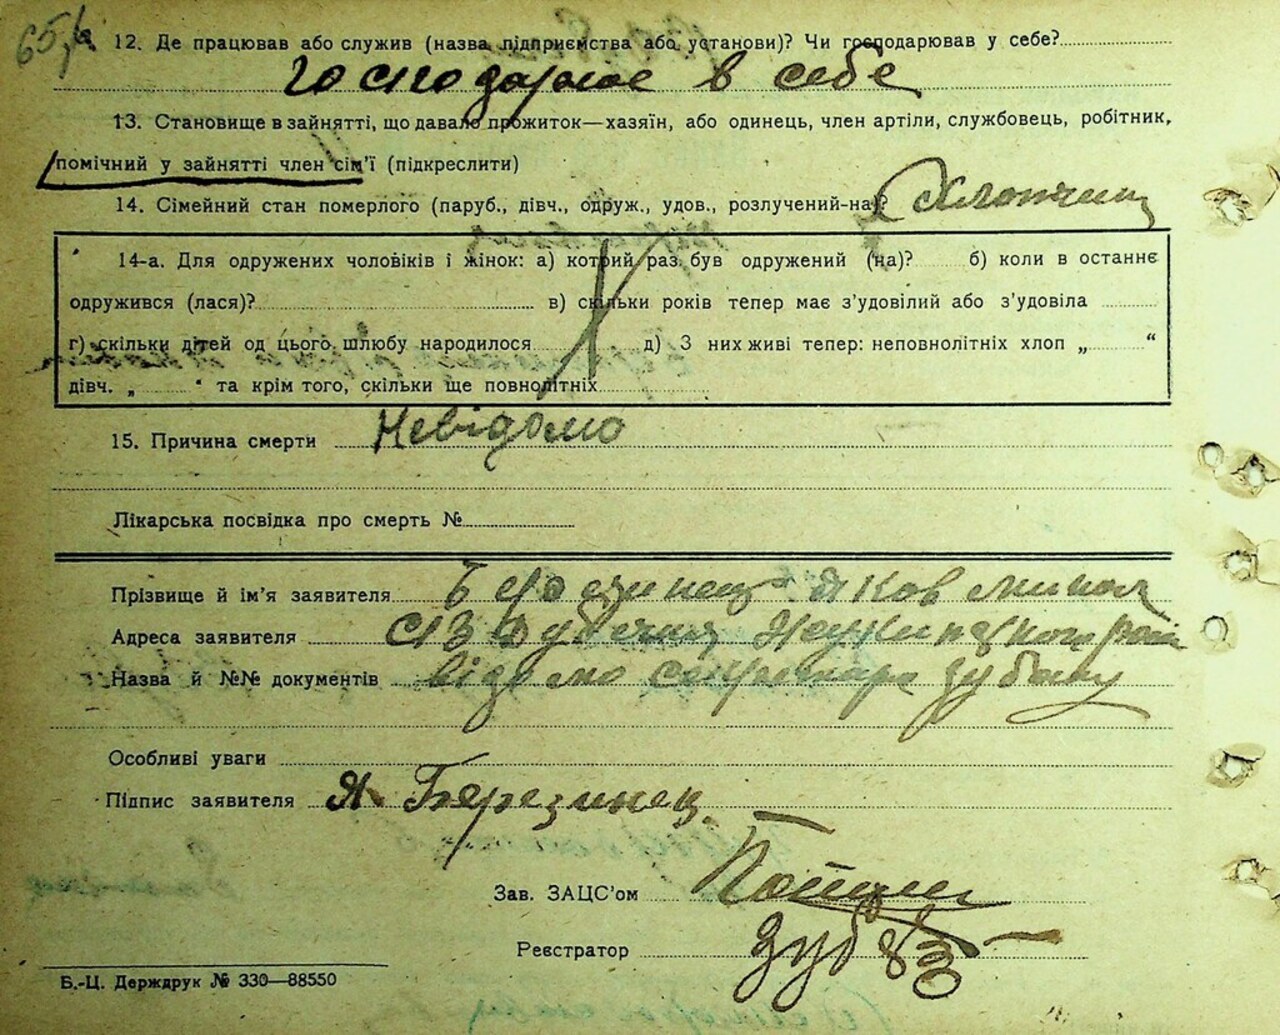 65,6
12. Де працював або служив (назва підприємства або установи)? Чи господарював у себе?
господарює в себе
13. Становище в зайнятті, що давало прожиток—хазяїн, або одинець, член артіли, службовець, робітник,
помічний у зайнятті член сім'ї (підкреслити)
14. Сімейний стан померлого (паруб., дівч., одруж., удов., розлучений-на)? Хлопчик
14-а. Для одружених чоловіків і жінок: а) котрий раз був одружений (на)? б) коли в останнє
одружився (лася)? в) скільки років тепер має з'удовілий або з'удовіла
г) скільки дітей од цього шлюбу народилося д) З них живі тепер: неповнолітніх хлоп „ “
дівч. „ “ та крім того, скільки ще повнолітніх
15. Причина смерти Невідомо
Лікарська посвідка про смерть №
Прізвище й ім'я заявителя Яков
Адреса заявителя
Назва й №№ документів відомо секретарю Зубану
Особливі уваги
Підпис заявителя Я. Березинец
Зав. ЗАЦС'ом
Реєстратор
Б.-Ц. Держдрук № 330—88550